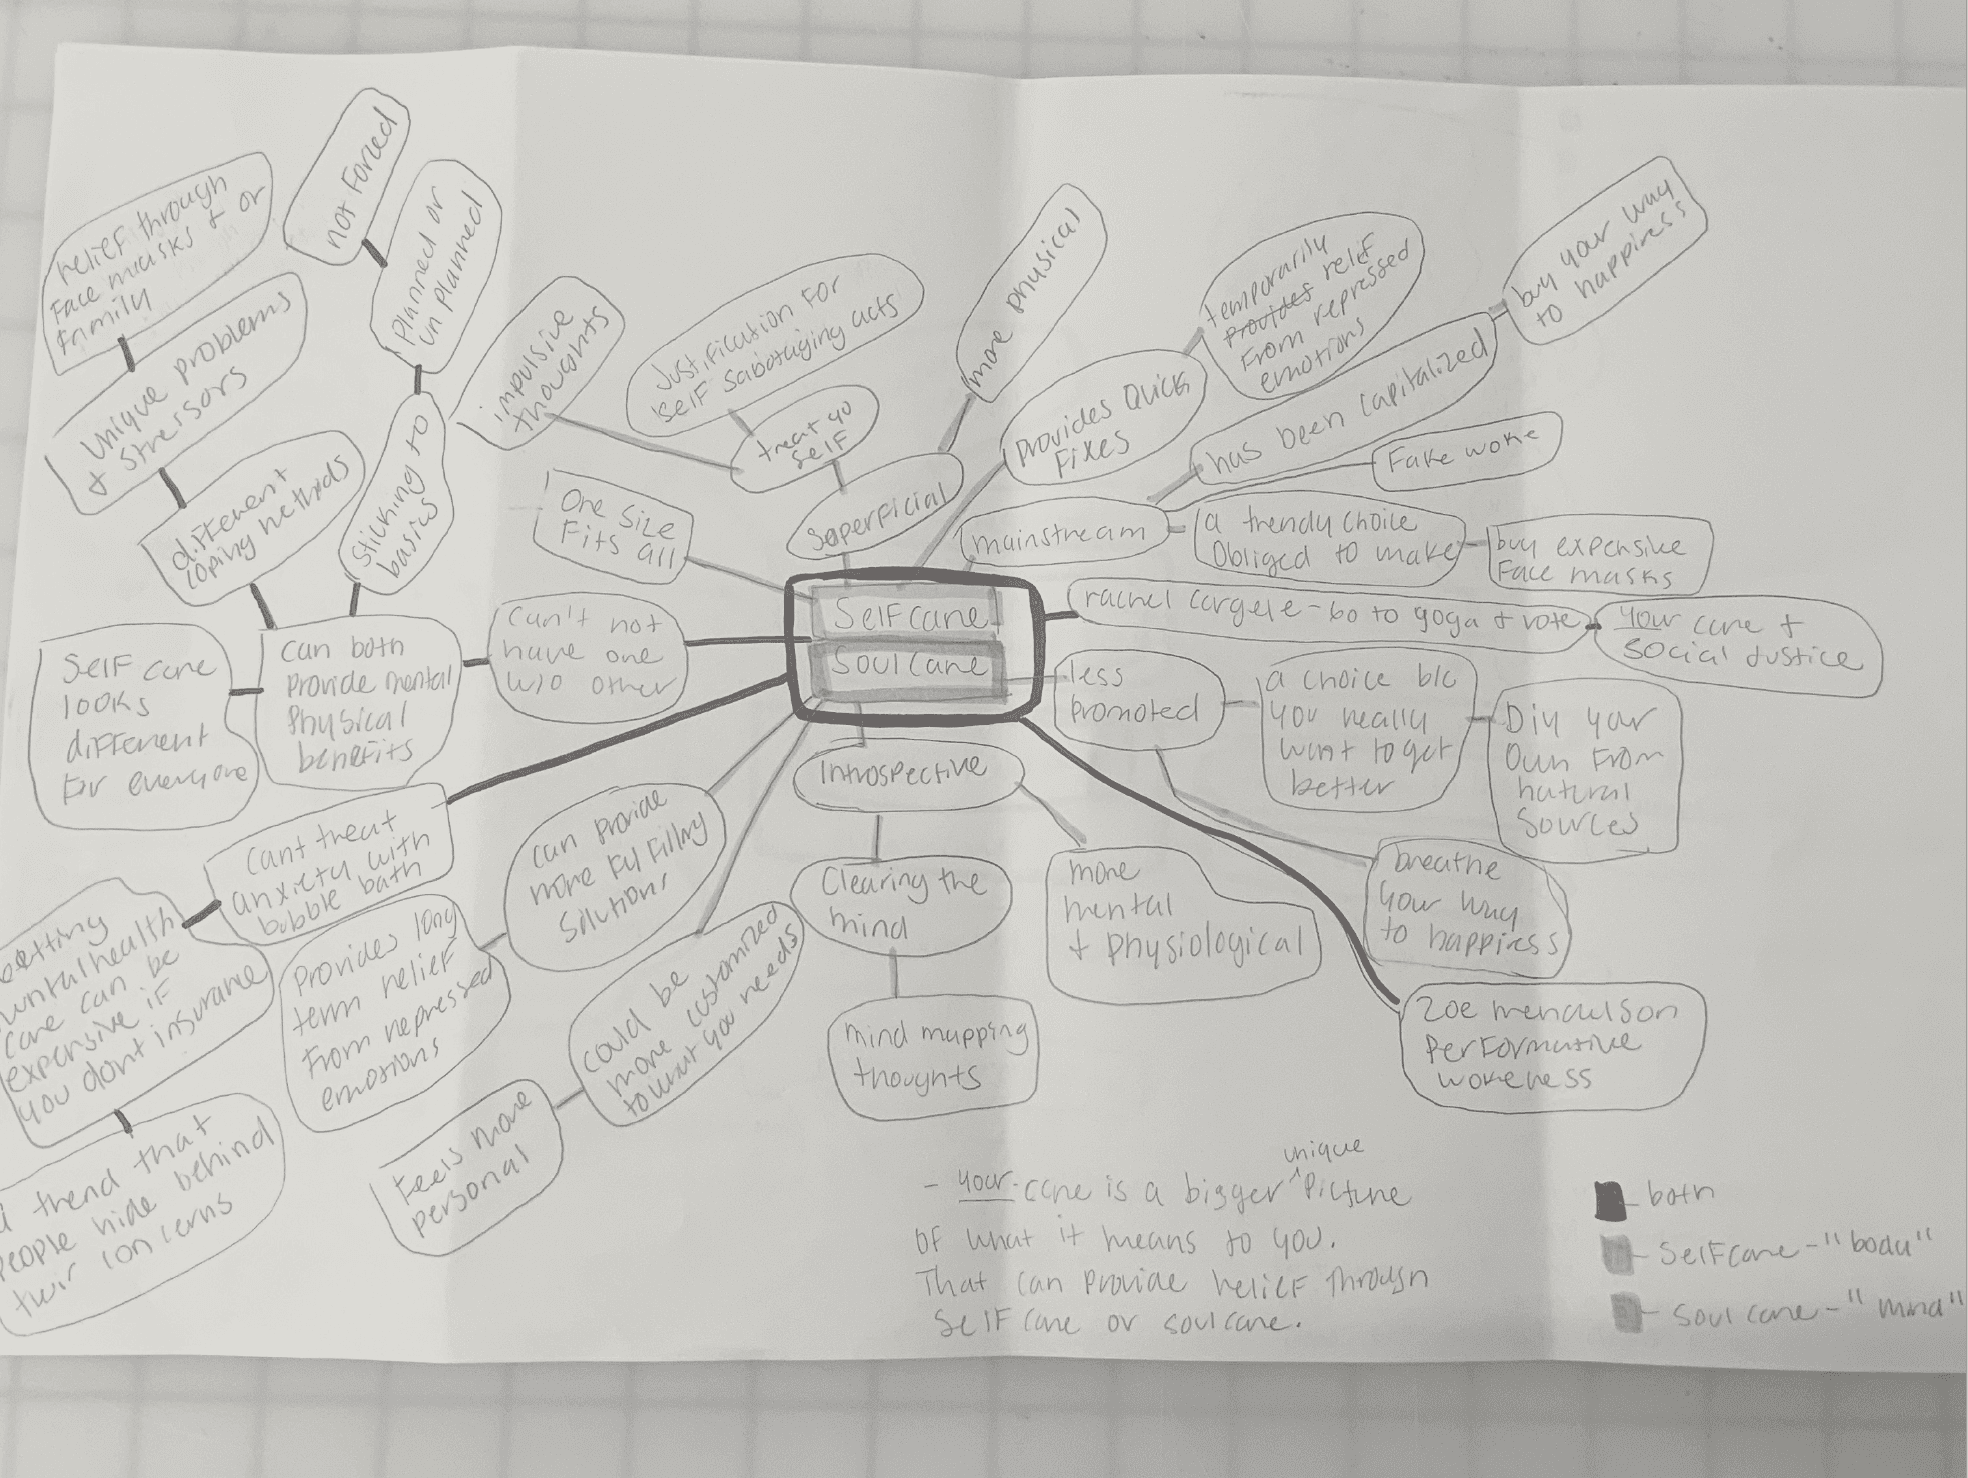 relief through
face masks + or
family
not forced
planned or
un planned
unique problems
+ stressors
different
coping methods
sticking to
basics
impulsive
thoughts
Justification for
self sabotaging acts
treat yo
self
more physical
superficial
One size
Fits all
provides quick
fixes
temporarily
provides relief
from repressed
emotions
has been capitalized
buy your way
to happiness
Fake woke
mainstream
a trendy choice
Obliged to make
buy expensive
face masks
Selfcare
Soulcare
rachel cargele - Go to yoga + vote
your care +
Social Justice
Can't not
have one
w/o other
can both
provide mental
physical
benefits
Self care
looks
different
for everyone
less
promoted
a choice b/c
you really
want to get
better
Diy your
Own from
natural
Sources
breathe
your way
to happiness
Introspective
Clearing the
mind
mind mapping
thoughts
more
mental
+ physiological
can provide
more fulfilling
solutions
Provides long
term relief
from repressed
emotions
could be
more customized
to what you needs
feels more
personal
Cant treat
anxiety with
bubble bath
getting
mental health
care can be
expensive if
you dont insurance
a trend that
people hide behind
their concerns
Zoe mendelson
performative
wokeness
- your care is a bigger unique picture
of what it means to you.
That can provide relief through
self care or soulcare.
both
Selfcare - "body"
Soul care - "mind"